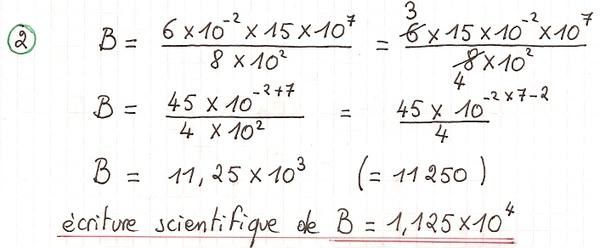 ② B = \frac{6 × 10^{-2} × 15 × 10^{7}}{8 × 10^{2}} = \frac{\overset{3}{\cancel{6}} × 15 × 10^{-2} × 10^{7}}{\underset{4}{\cancel{8}} × 10^{2}}
B = \frac{45 × 10^{-2+7}}{4 × 10^{2}} = \frac{45 × 10^{-2×7-2}}{4}
B = 11,25 × 10^{3} (= 11 250)
écriture scientifique de B = 1,125 × 10^{4}